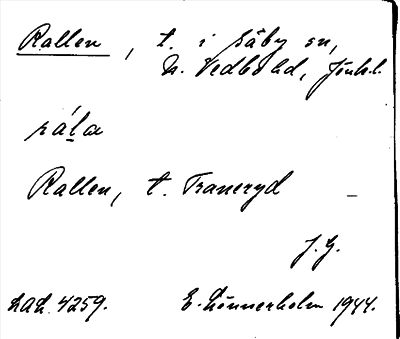 Rallen, t. i Säby sn,
N. Vedbo hd, Jönk. l.
rála
Rallen, t. Traneryd –
J. G.
LAL 4259. E. Lönnerholm 1944.